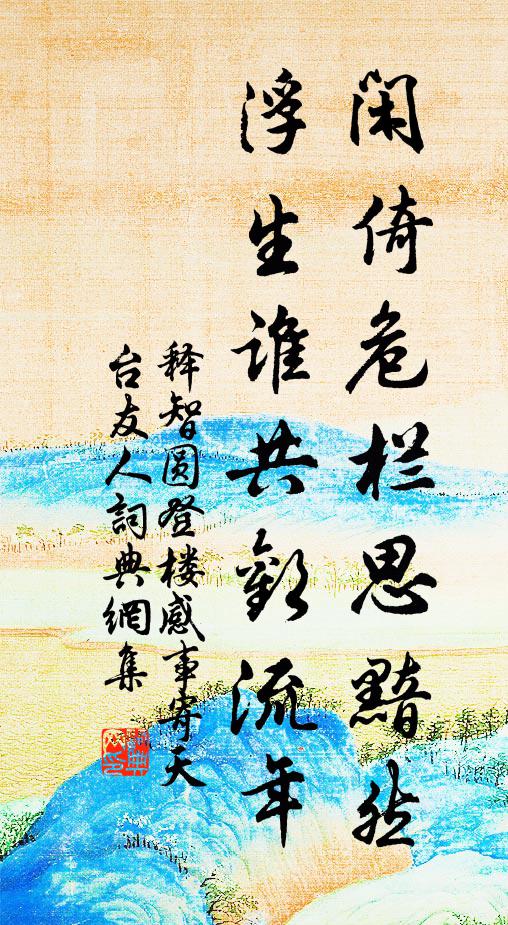 闲倚危栏思黯然
浮生谁共歎流年
释智圆登楼感事寄天
台友人詞典網集